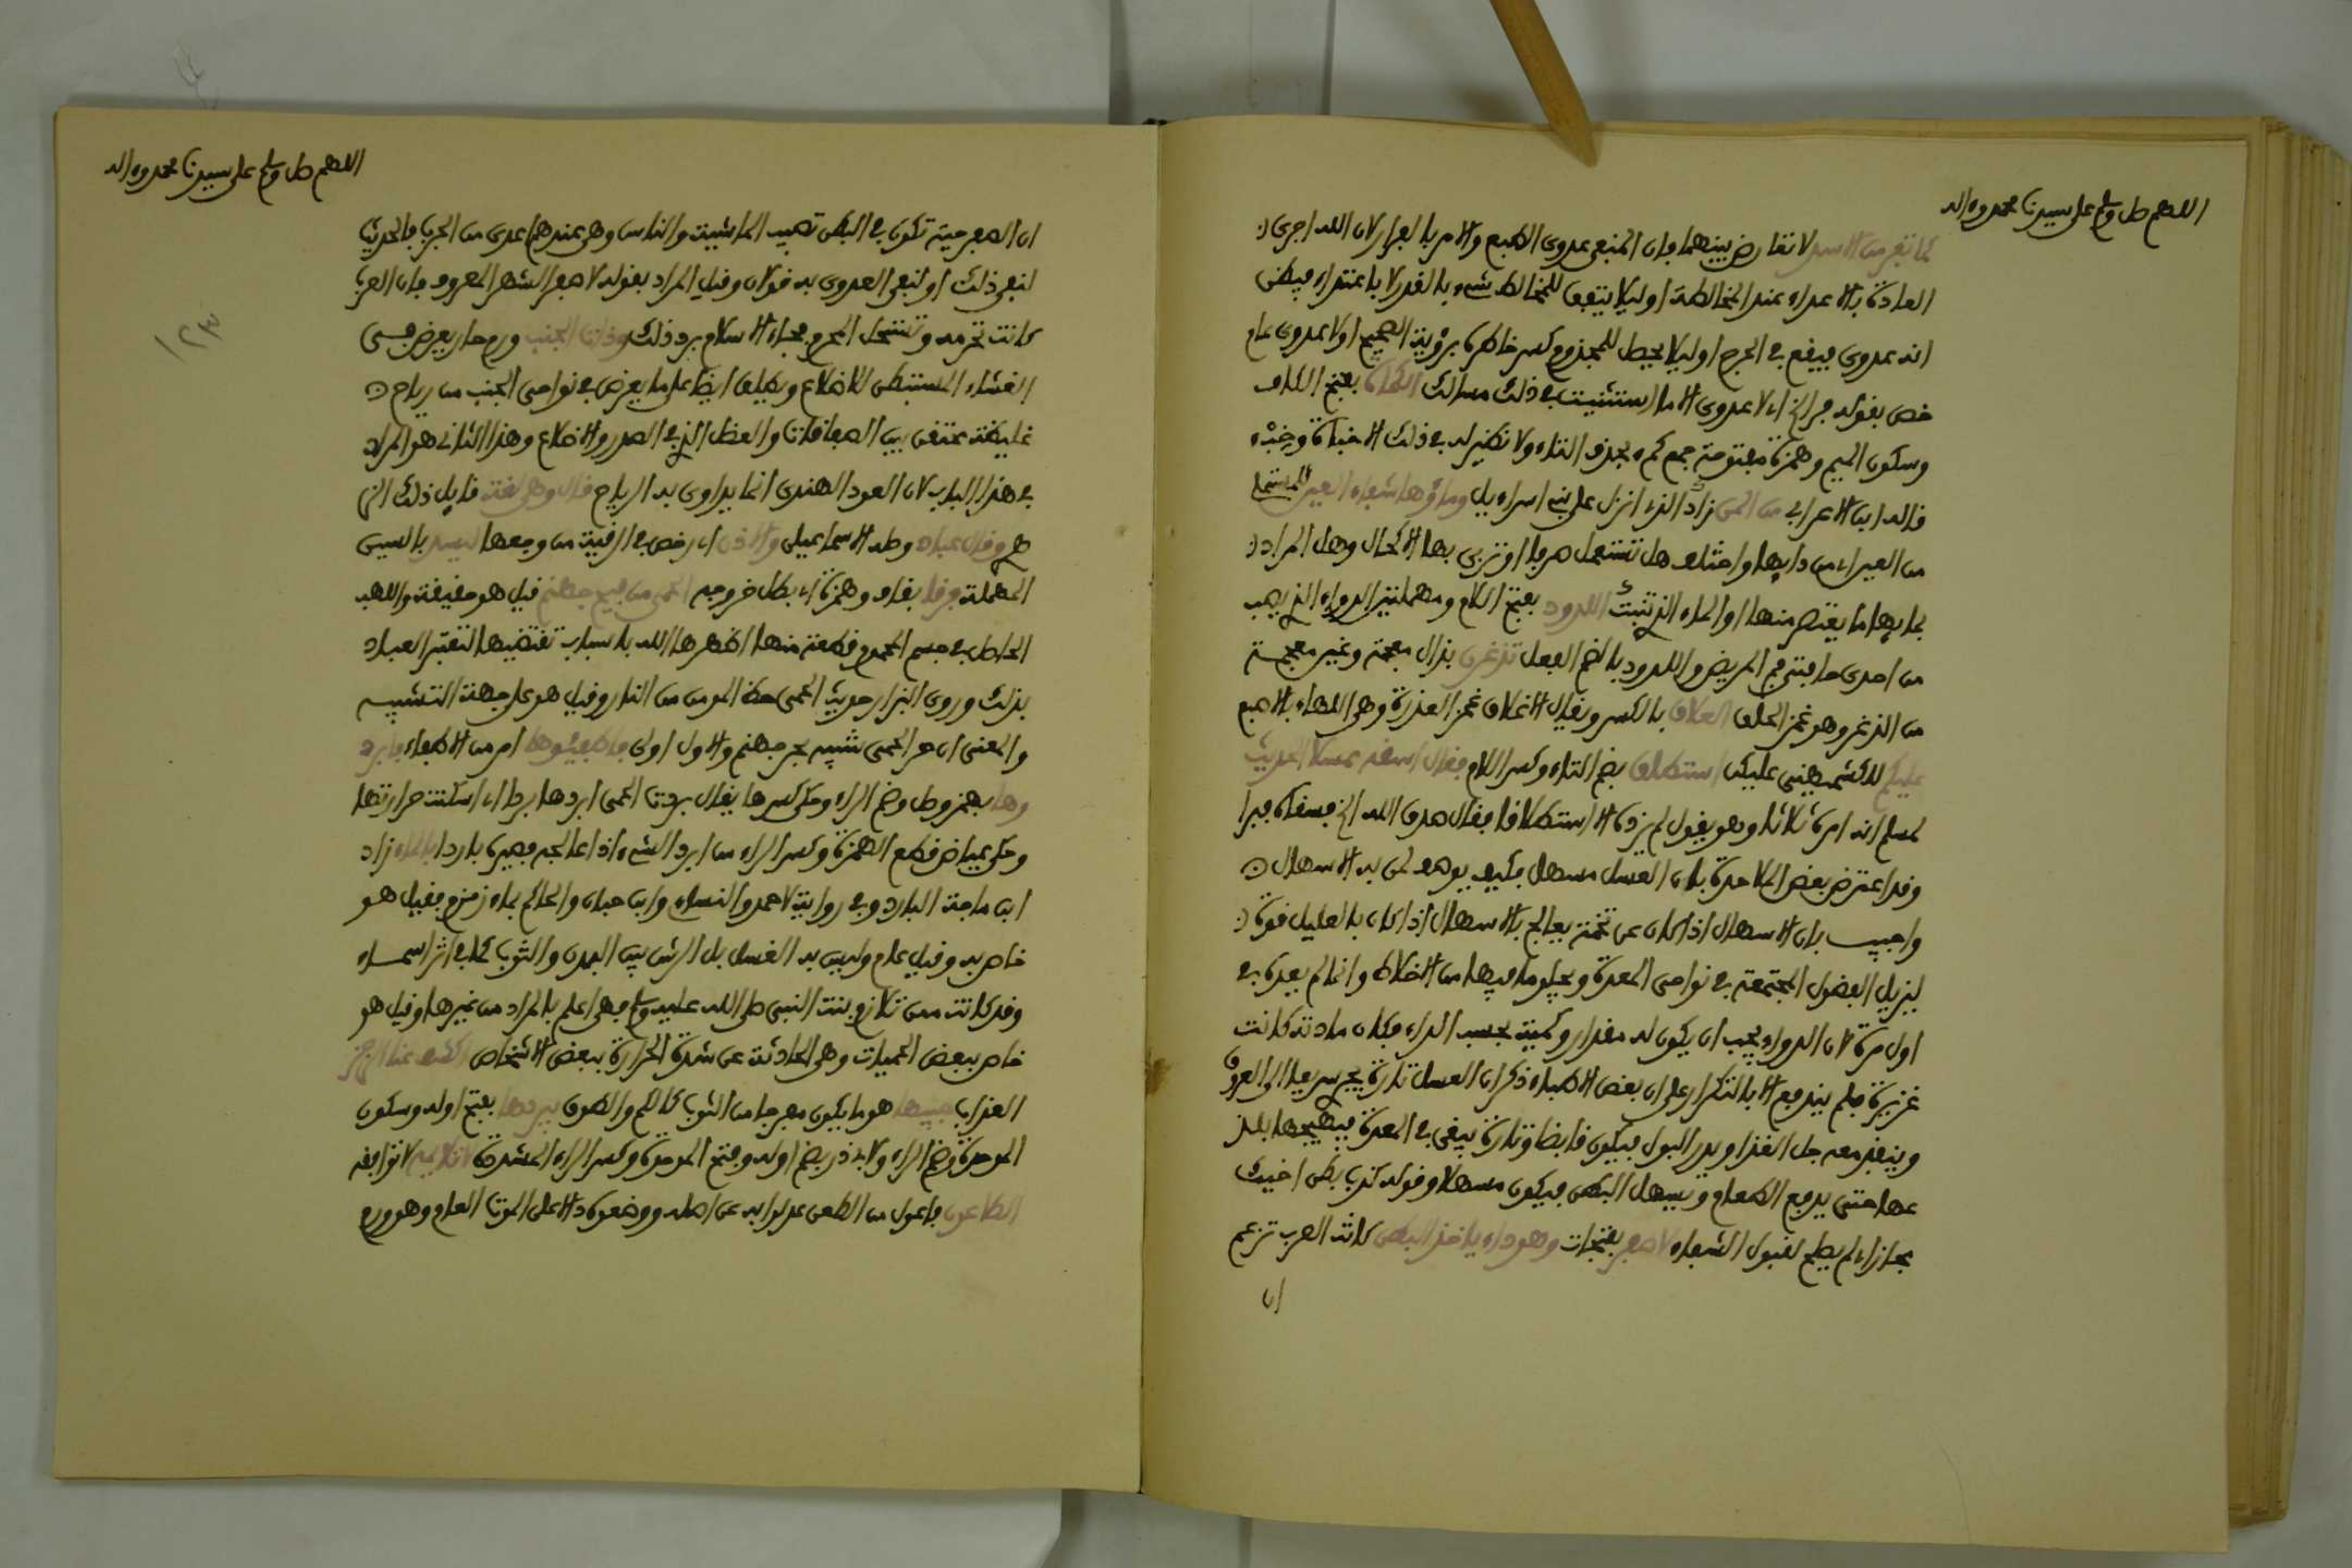 اللهم صل وسلم على سيدنا محمد وءاله
كما تفر من الاسد لا تعارض بينهما فان المنفي عدوى الطبع والامر بالفرار لان الله اجرى
العادة بالاعداء عند المخالطة او ليلا يتفق للمخالط شيء بالقدر لا باعتداء فيظن
انه عدوى فيقع في الحرج او ليلا يحصل للمجذوم كسر خاطره برؤية الصحيح او لا عدوى عام
خص بقوله فر الخ اي لا عدوى الا ما استثنيت في ذلك مسالك الكمأة بفتح الكاف
وسكون الميم وهمزة مفتوحة جمع كمء بحذف التاء ولا نظير له في ذلك الا خبأة وخبء
قاله ابن الاعرابي من المن زاد الذي انزل على بني اسراءيل وماؤها شفاء العين المستعملة
من العين اي من دايها واختلف هل تستعمل صرفا او تربى بها الاكحال وهل المراد
بمايها ما يعتصر منها او الماء الذي تنبت اللدود بفتح اللام ومهملتين الدواء الذي يصب
من احدى جانبي فم المريض واللدود بالضم الفعل تدغرن بدال معجمة وغير معجمة
من الدغر وهو غمز الحلق العلاق بالكسر ويقال الاغلاق غمز العذرة وهي اللهاة بالاصبع
عليكم للكشميهني عليكن استطلق بضم التاء وكسر اللام فقال اسقه عسلا الحديث
لمسلم انه امره ثلاثا وهو يقول لم يزده الا استطلاقا فقال صدق الله الخ فسقاه فبرا
وقد اعترض بعض الملاحدة بان العسل مسهل فكيف يوصف لمن به الاسهال
واجيب بان الاسهال اذا كان عن تخمة يعالج بالاسهال اذا كان بالعليل قوة
ليزيل الفضول المجتمعة في نواحي المعدة ويجلو ما فيها من الاخلاط وانما لم يفده في
اول مرة لان الدواء يجب ان يكون له مقدار وكمية بحسب الداء فكان مادته كانت
غزيرة فلم يندفع الا بالتكرار على ان بعض الاطباء ذكر ان العسل تارة يجري سريعا الى العروق
وينفذ معه جل الغذا ويدر البول فيكون قابضا وتارة يبقى في المعدة فيهيجها بلذ
عها حتى يدفع الطعام ويسهل البطن فيكون مسهلا وقوله كذب بطن اخيك
مجاز اي لم يصلح لقبول الشفاء لا صفر بفتحات وهو داء ياخذ البطن كانت العرب تزعم
ان
اللهم صل وسلم على سيدنا محمد وءاله
١٢٣
ان الصفر حية تكون في البطن تصيب الماشية والناس وهي عندهم اعدى من الجرب فالحديث
لنفي ذلك او لنفي العدوى به قولان وقيل المراد بقوله لا صفر الشهر المعروف فان العرب
كانت تحرمه وتستحل المحرم فجاء الاسلام برد ذلك وذات الجنب ورم حار يعرض في
الغشاء المستبطن للاضلاع ويطلق ايضا على ما يعرض في نواحي الجنب من رياح
غليظة تحتقن بين الصفاقات والعضل التي في الصدر والاضلاع وهذا الثاني هو المراد
في هذا الباب لان العود الهندي انما يداوى به الرياح قال وهي لغة قايل ذلك الز
هر وقال عباد وصله الاسماعيلي والاذن اي رخص في الرقية من وجعها ليسد بالسين
المهملة ورقا بقاف وهمزة اي بطل خروجه الحمى من فيح جهنم قيل هو حقيقة واللهب
الحاصل في جسم المحموم قطعة منها اظهرها الله باسباب تقتضيها لتعتبر العباد
بذلك وروى البزار حديث الحمى حظ المومن من النار وقيل هو على جهة التشبيه
والمعنى ان حر الحمى شبيه بحر جهنم والاول اولى فاطفئوها امر من الاطفاء فابرد
وها بهمز وصل وضم الراء وحكي كسرها يقال بردت الحمى ابردها بردا اي اسكنت حرارتها
وحكى عياض قطع الهمزة وكسر الراء من ابرد الشيء اذا عالجه فصيره باردا بالماء زاد
ابن ماجة البارد وفي رواية لاحمد والنساي وابن حبان والحاكم بماء زمزم فقيل هو
خاص به وقيل عام وليس به الغسل بل الرش بين البدن والثوب كما في اثر اسماء
وقد كانت ممن تلازم بنت النبي صلى الله عليه وسلم فهي اعلم بالمراد من غيرها وقيل هو
خاص ببعض الحميات وهي الحادثة عن شدة الحرارة ببعض الاشخاص اكشف عنا الرجز
العذاب جيبها هو ما يكون مفرجا من الثوب كالكم والطوق نبردها بفتح اوله وسكون
الموحدة وضم الراء ولابي ذر بضم اوله وفتح الموحدة وكسر الراء المشددة لا تلايمه لا توافقه
الطاعون فاعول من الطعن عدلوا به عن اصله ووضعوه دالا على الموت العام وهو ورم